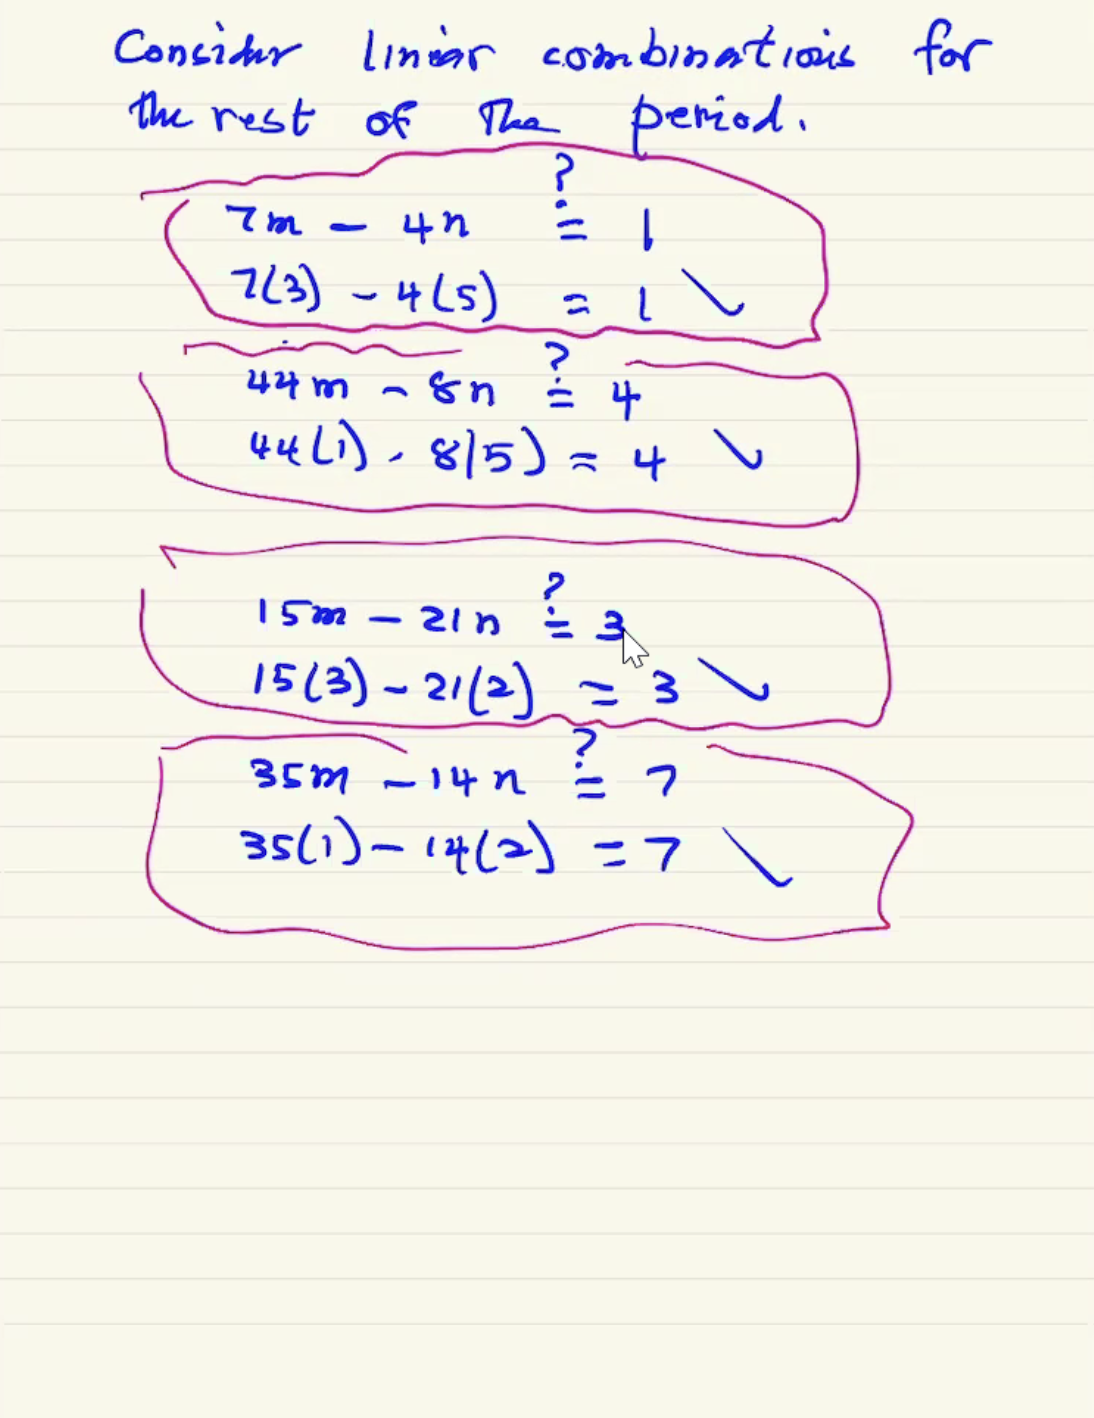 Consider linear combinations for
the rest of the period.
?
7m - 4n = 1
7(3) - 4(5) = 1 ✓
?
44m - 8n = 4
44(1) - 8(5) = 4 ✓
?
15m - 21n = 3
15(3) - 21(2) = 3 ✓
?
35m - 14n = 7
35(1) - 14(2) = 7 ✓